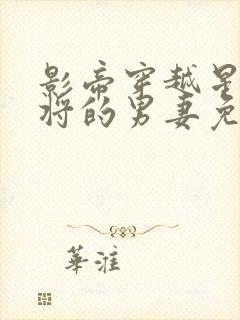 影帝穿越星
将的男妻免
華淮